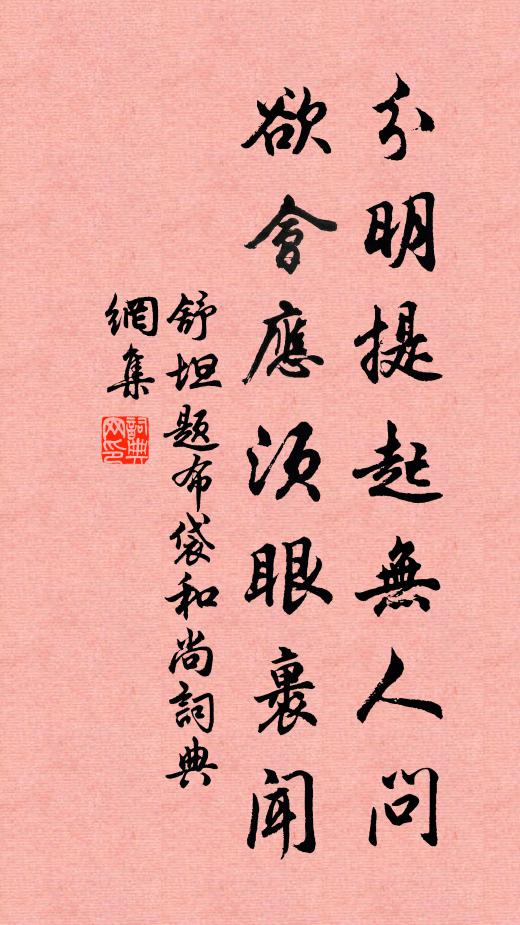 分明提起無人問
欲會應須眼裏聞
舒坦題布袋和尚詞典
網集
詞典
网印